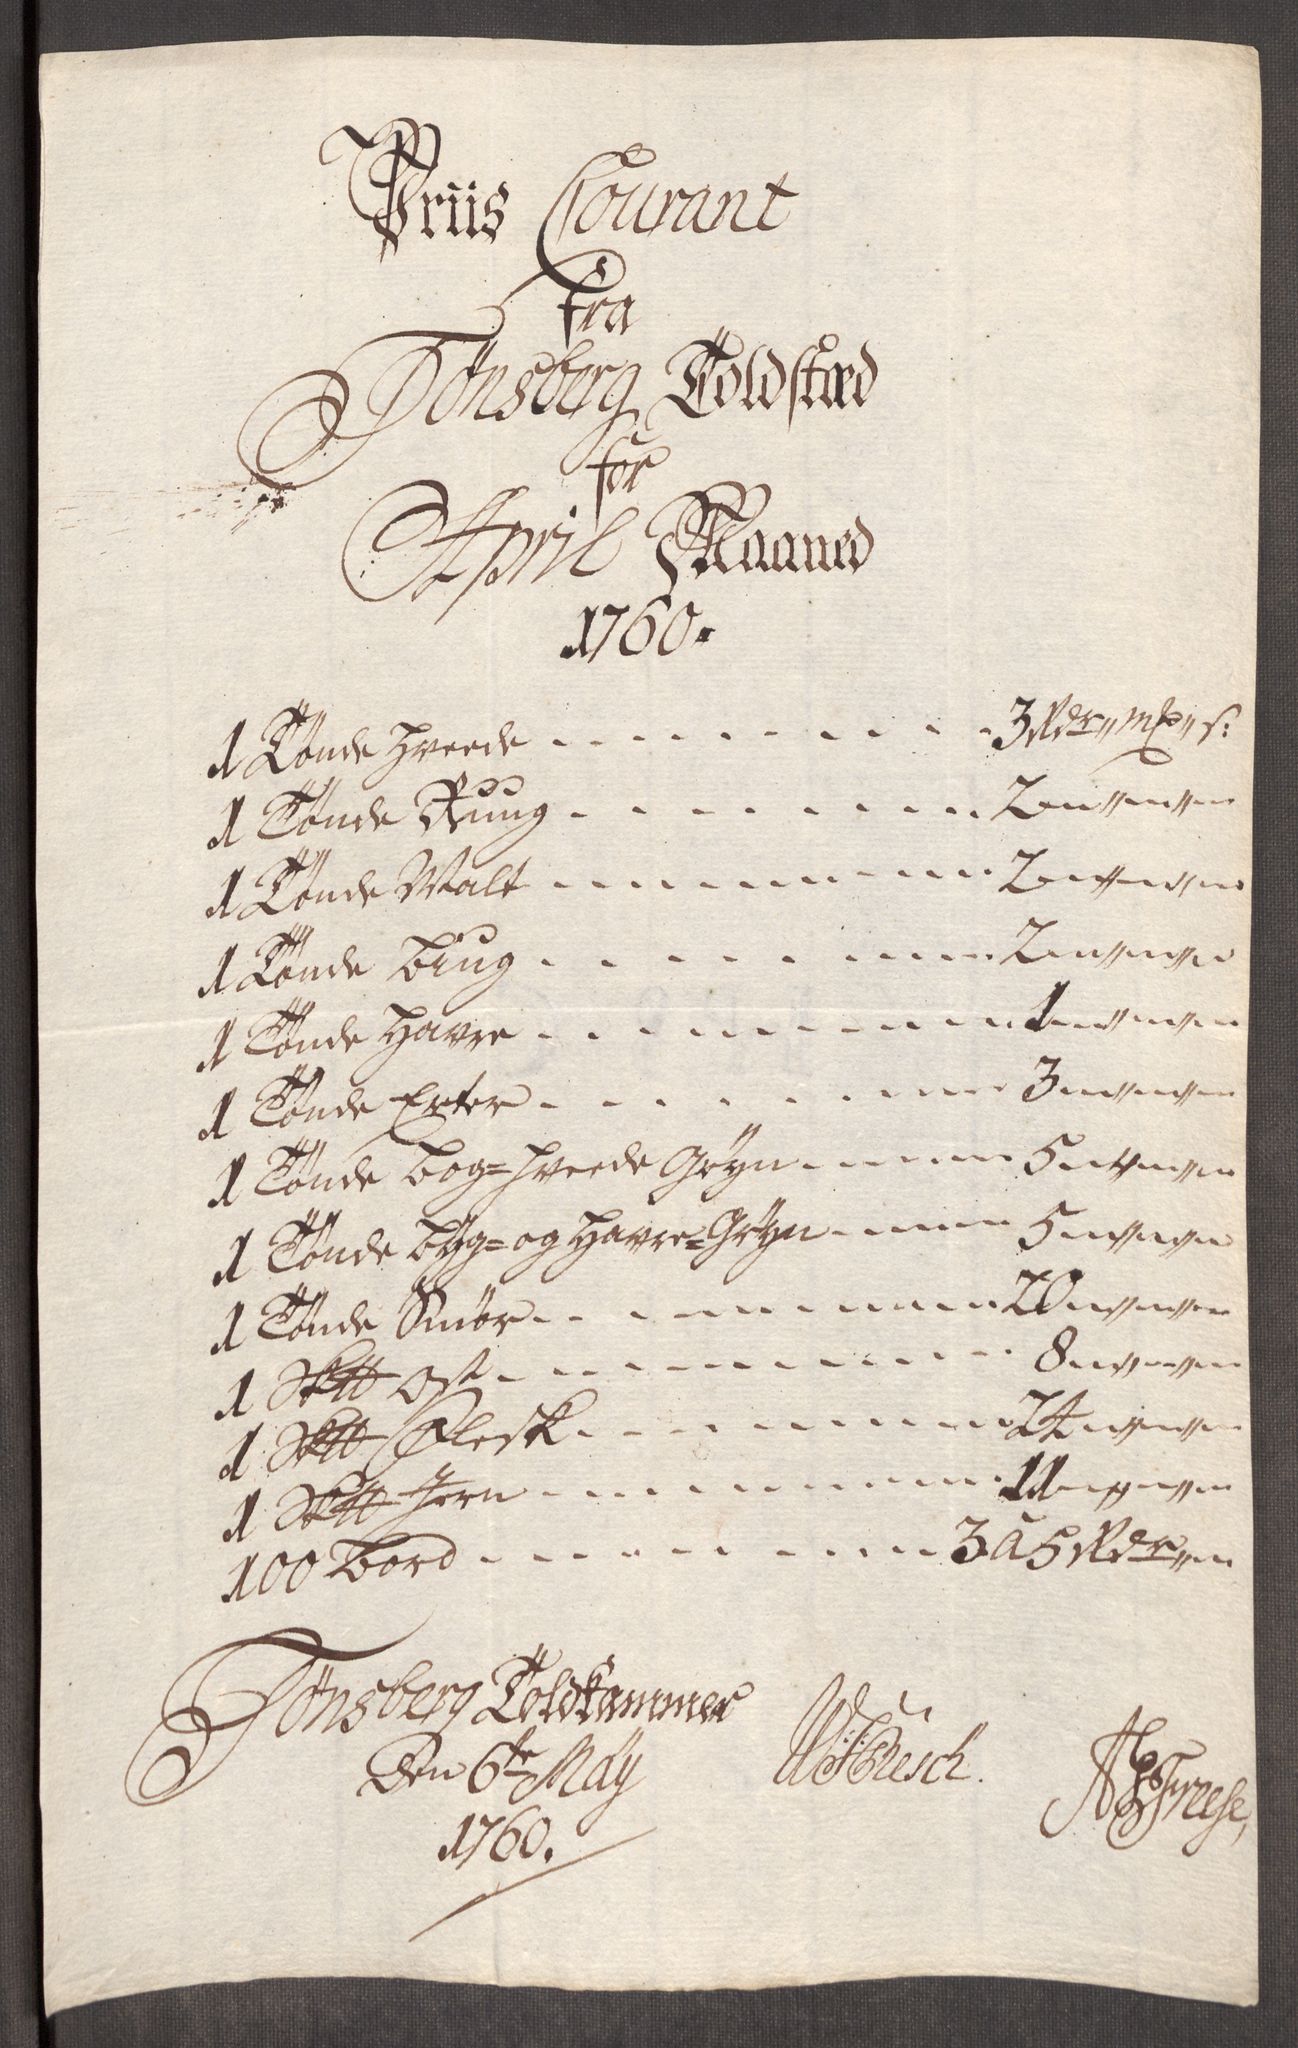 Priis Courant
fra
Tönsberg Toldstæd
for
April Maaned
1760.
1 Tönde Hveede - - - 3 Rdr " mk " s:
1 Tönde Rúúg - - - 2 - " - " -
1 Tönde Malt - - - 2 - " - " -
1 Tönde biúg - - - 2 - " - " -
1 Tönde Havre - - - 1 - " - " -
1 Tönde Erter - - - 3 - " - " -
1 Tönde bog=hveede Grÿn - - - 5 - " - " -
1 Tönde bÿg= og Havre=Grÿn - - - 5 - " - " -
1 Tönde Smör - - - 20 - " - " -
1 Sk℔ Ost - - - 8 - " - " -
1 Sk℔ Flesk - - - 24 - " - " -
1 Sk℔ Jern - - - 11 - " - " -
100 bord - - - 3 à 5 Rdr " -
Tönsberg Toldkammer
Den 6te Maÿ
1760.
Röesch.
Freese,